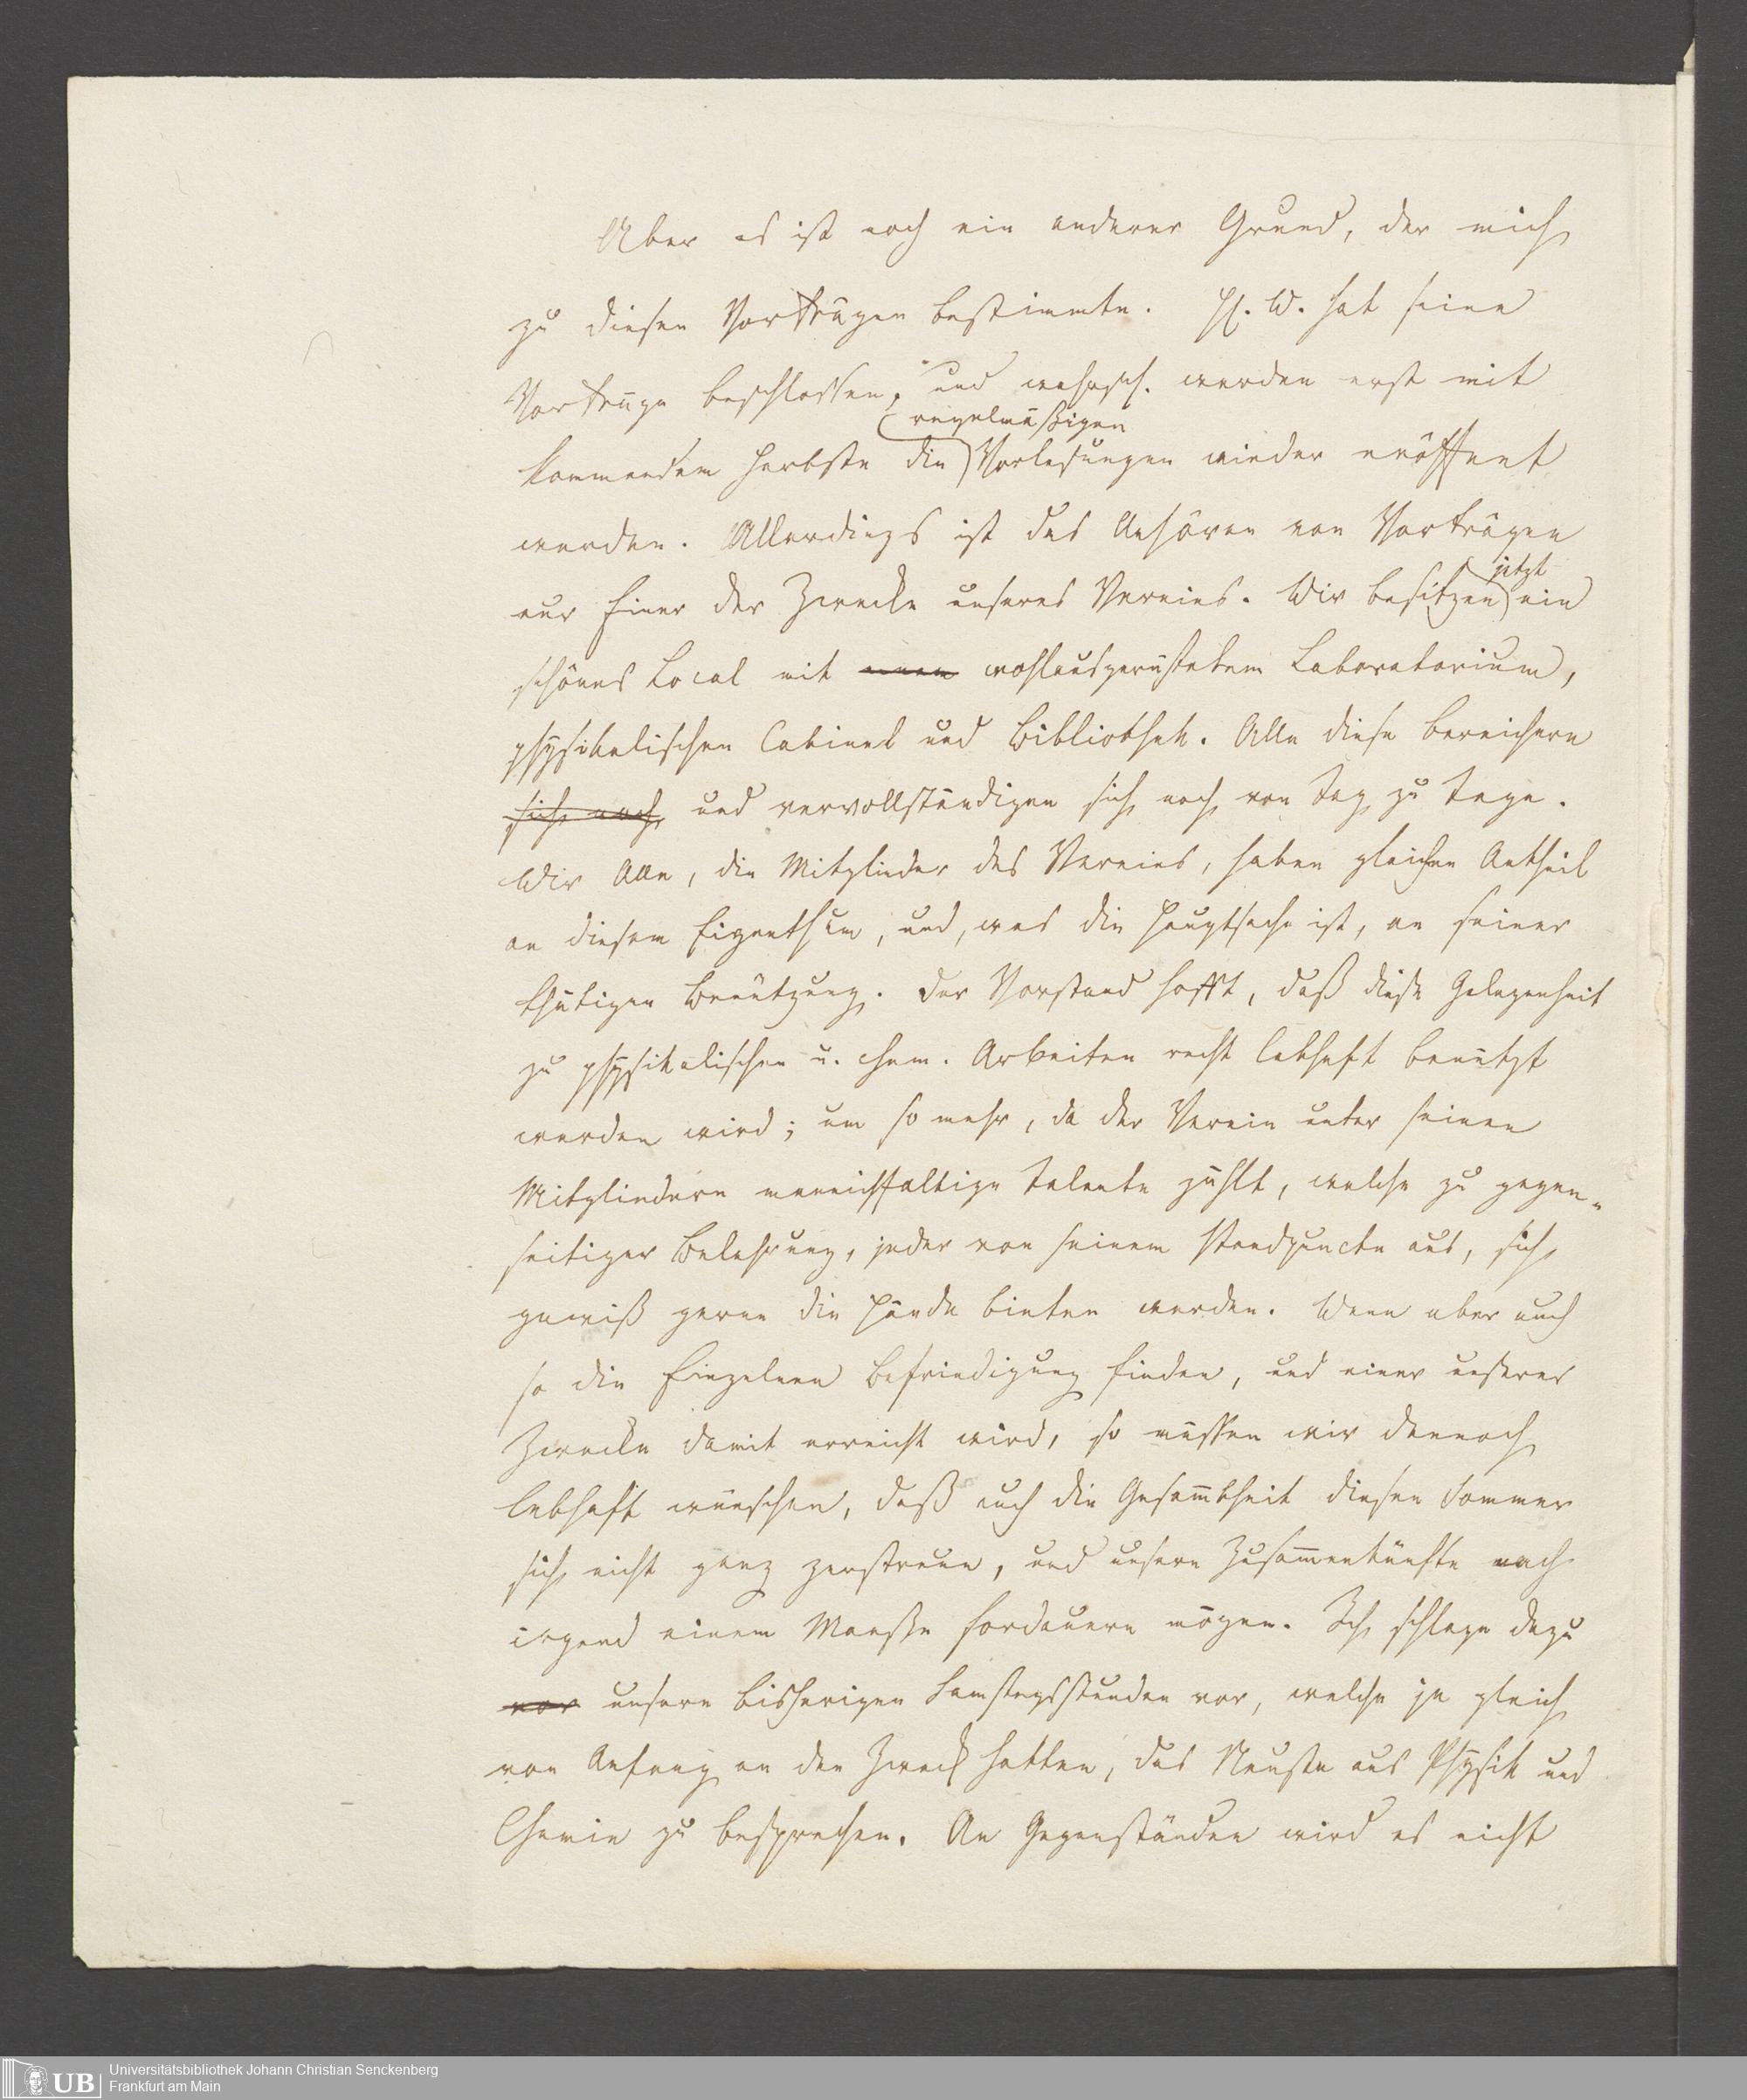 Aber es ist noch ein anderer Grund, der mich
zu diesen Vorträgen bestimmte. H. W. hat seine
Vorträge beschlossen, und wahrsch. werden erst mit
regelmäßigen
kommendem Herbste die Vorlesungen wieder eröffnet
werden. Allerdings ist das Anhören von Vorträgen
jetzt
nur Einer der Zwecke unseres Vereins. Wir besitzen ein
schönes Local mit wohlausgerüstetem Laboratorium,
physikalischen Cabinet und Bibliothek. Alle diese bereichern
sich noch und vervollständigen sich noch von Tag zu Tage.
Wir Alle, die Mitglieder des Vereins, haben gleichen Antheil
an diesem Eigenthum, und, was die Hauptsache ist, an seiner
thätigen Benützung. Der Vorstand hofft, daß diese Gelegenheit
zu physikalischen u. chem. Arbeiten recht lebhaft benützt
werden wird; um so mehr, da der Verein unter seinen
Mitgliedern mannichfaltige Talente zählt, welche zu gegen-
seitiger Belehrung, jeder von seinem Standpuncte aus, sich
gewiß gerne die Hände bieten werden. Wenn aber auch
so die Einzelnen Befriedigung finden, und einer unserer
Zwecke damit erreicht wird, so müssen wir dennoch
lebhaft wünschen, daß auch die Gesam̄theit diesen Sommer
sich nicht ganz zerstreue, und unsere Zusam̄enkünfte nach
irgend einem Maaße fordauern mögen. Ich schlage dazu
vor unsere bisherigen Samstagsstunden vor, welche ja gleich
von Anfang an den Zweck hatten, das Neuste aus Physik und
Chemie zu besprechen. An Gegenständen wird es nicht
UB Universitätsbibliothek Johann Christian Senckenberg
Frankfurt am Main